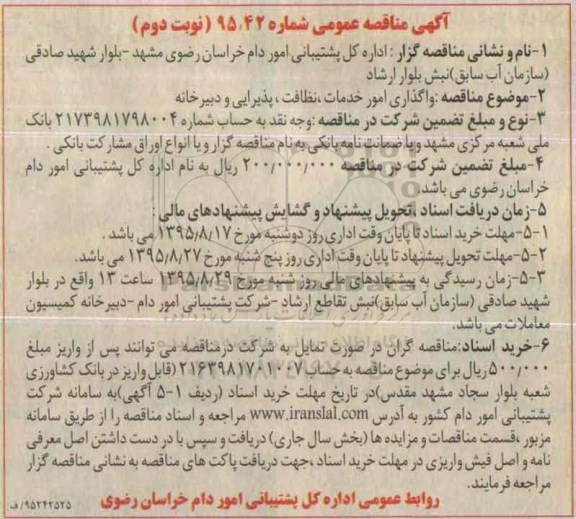 آگهی مناقصه عمومی شماره ۹۵،۴۲ (نوبت دوم)
۱-نام و نشانی مناقصه گزار : اداره کل پشتیبانی امور دام خراسان رضوی مشهد -بلوار شهید صادقی
(سازمان آب سابق)نبش بلوار ارشاد
۲-موضوع مناقصه :واگذاری امور خدمات ،نظافت ، پذیرایی و دبیرخانه
۳-نوع و مبلغ تضمین شرکت در مناقصه :وجه نقد به حساب شماره ۲۱۷۳۹۸۱۷۹۸۰۰۴ بانک
ملی شعبه مرکزی مشهد و یا ضمانت نامه بانکی به نام مناقصه گزار و یا انواع اوراق مشارکت بانکی .
۴-مبلغ تضمین شرکت در مناقصه ۲۰۰٫۰۰۰٫۰۰۰ ریال به نام اداره کل پشتیبانی امور دام
خراسان رضوی می باشد.
۵-زمان دریافت اسناد ،تحویل پیشنهاد و گشایش پیشنهادهای مالی :
۵-۱-مهلت خرید اسناد تا پایان وقت اداری روز دوشنبه مورخ ۱۳۹۵/۸/۱۷ می باشد .
۵-۲-مهلت تحویل پیشنهاد تا پایان وقت اداری روز پنج شنبه مورخ ۱۳۹۵/۸/۲۷ می باشد.
۵-۳-زمان رسیدگی به پیشنهادهای مالی روز شنبه مورخ ۱۳۹۵/۸/۲۹ ساعت ۱۳ واقع در بلوار
شهید صادقی (سازمان آب سابق)نبش تقاطع ارشاد -شرکت پشتیبانی امور دام -دبیرخانه کمیسیون
معاملات می باشد.
۶-خرید اسناد:مناقصه گران در صورت تمایل به شرکت درمناقصه می توانند پس از واریز مبلغ
۵۰۰٫۰۰۰ ریال برای موضوع مناقصه به حساب ۲۱۶۳۹۸۱۷۰۱۰۰۷ (قابل واریز در بانک کشاورزی
شعبه بلوار سجاد مشهد مقدس)در تاریخ مهلت خرید اسناد (ردیف ۱-۵ آگهی)به سامانه شرکت
پشتیبانی امور دام کشور به آدرس www.iranslal.com مراجعه و اسناد مناقصه را از طریق سامانه
مزبور ،قسمت مناقصات و مزایده ها (بخش سال جاری) دریافت و سپس با در دست داشتن اصل معرفی
نامه و اصل فیش واریزی در مهلت خرید اسناد ،جهت دریافت پاکت های مناقصه به نشانی مناقصه گزار
مراجعه فرمایند.
روابط عمومی اداره کل پشتیبانی امور دام خراسان رضوی
۹۵۲۴۲۵۲۵/ف